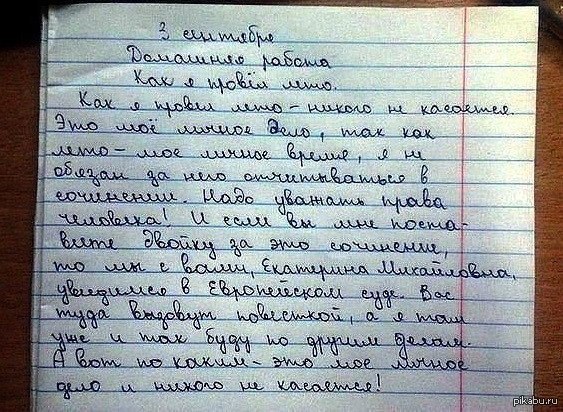 3 сентября
Домашняя работа
Как я провёл лето.
Как я провел лето – никого не касается.
Это моё личное дело, так как
лето – мое личное время, я не
обязан за него отчитываться в
сочинении. Надо уважать права
человека! И если вы мне поста-
вите двойку за это сочинение,
то мы с вами, Екатерина Михайловна,
увидимся в Европейском суде. Вас
туда вызовут повесткой, а я там
уже и так буду по другим делам.
А вот по каким – это мое личное
дело и никого не касается!
pikabu.ru